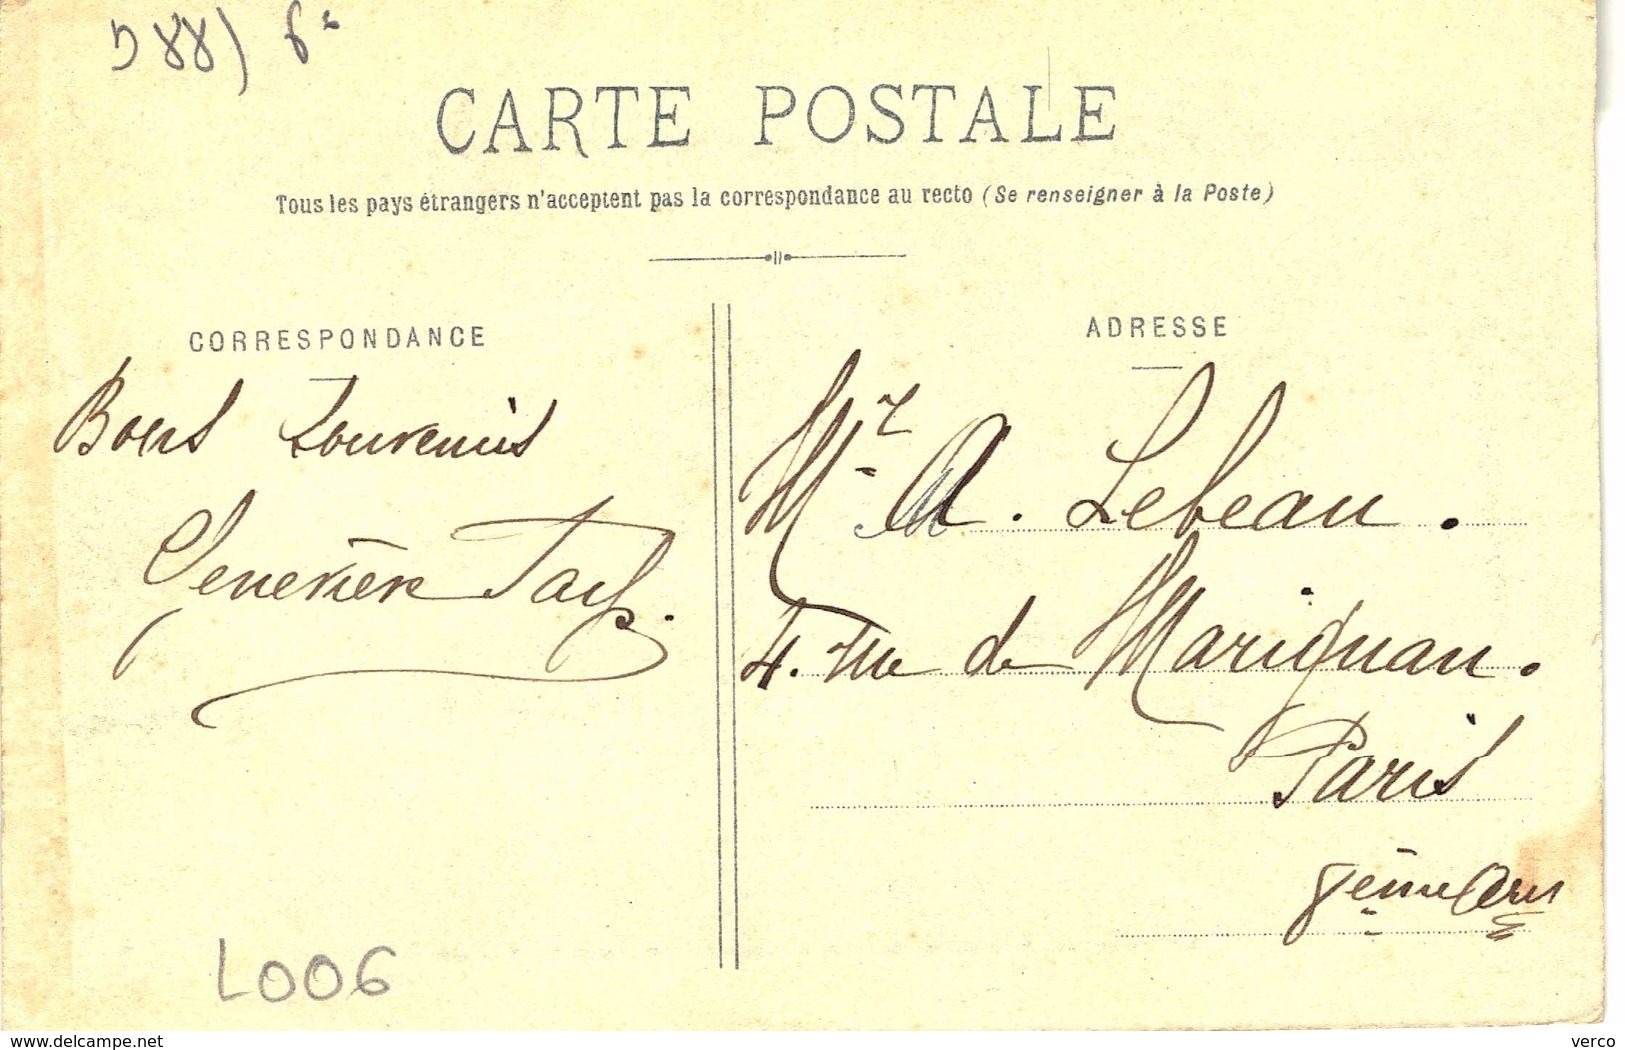 D 88) 6€
CARTE POSTALE
Tous les pays étrangers n'acceptent pas la correspondance au recto (Se renseigner à la Poste)
CORRESPONDANCE
Bons Souvenirs
Geneviève
ADRESSE
Mr A. Lebeau.
4. rue de Marignan.
Paris
8ème Arr
L006
www.delcampe.net
verco